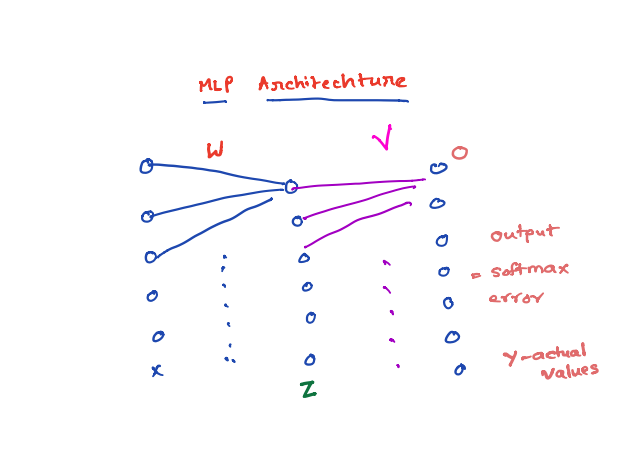 MLP Architechture
W
V
O
output
= softmax
error
x
Z
y-actual
values